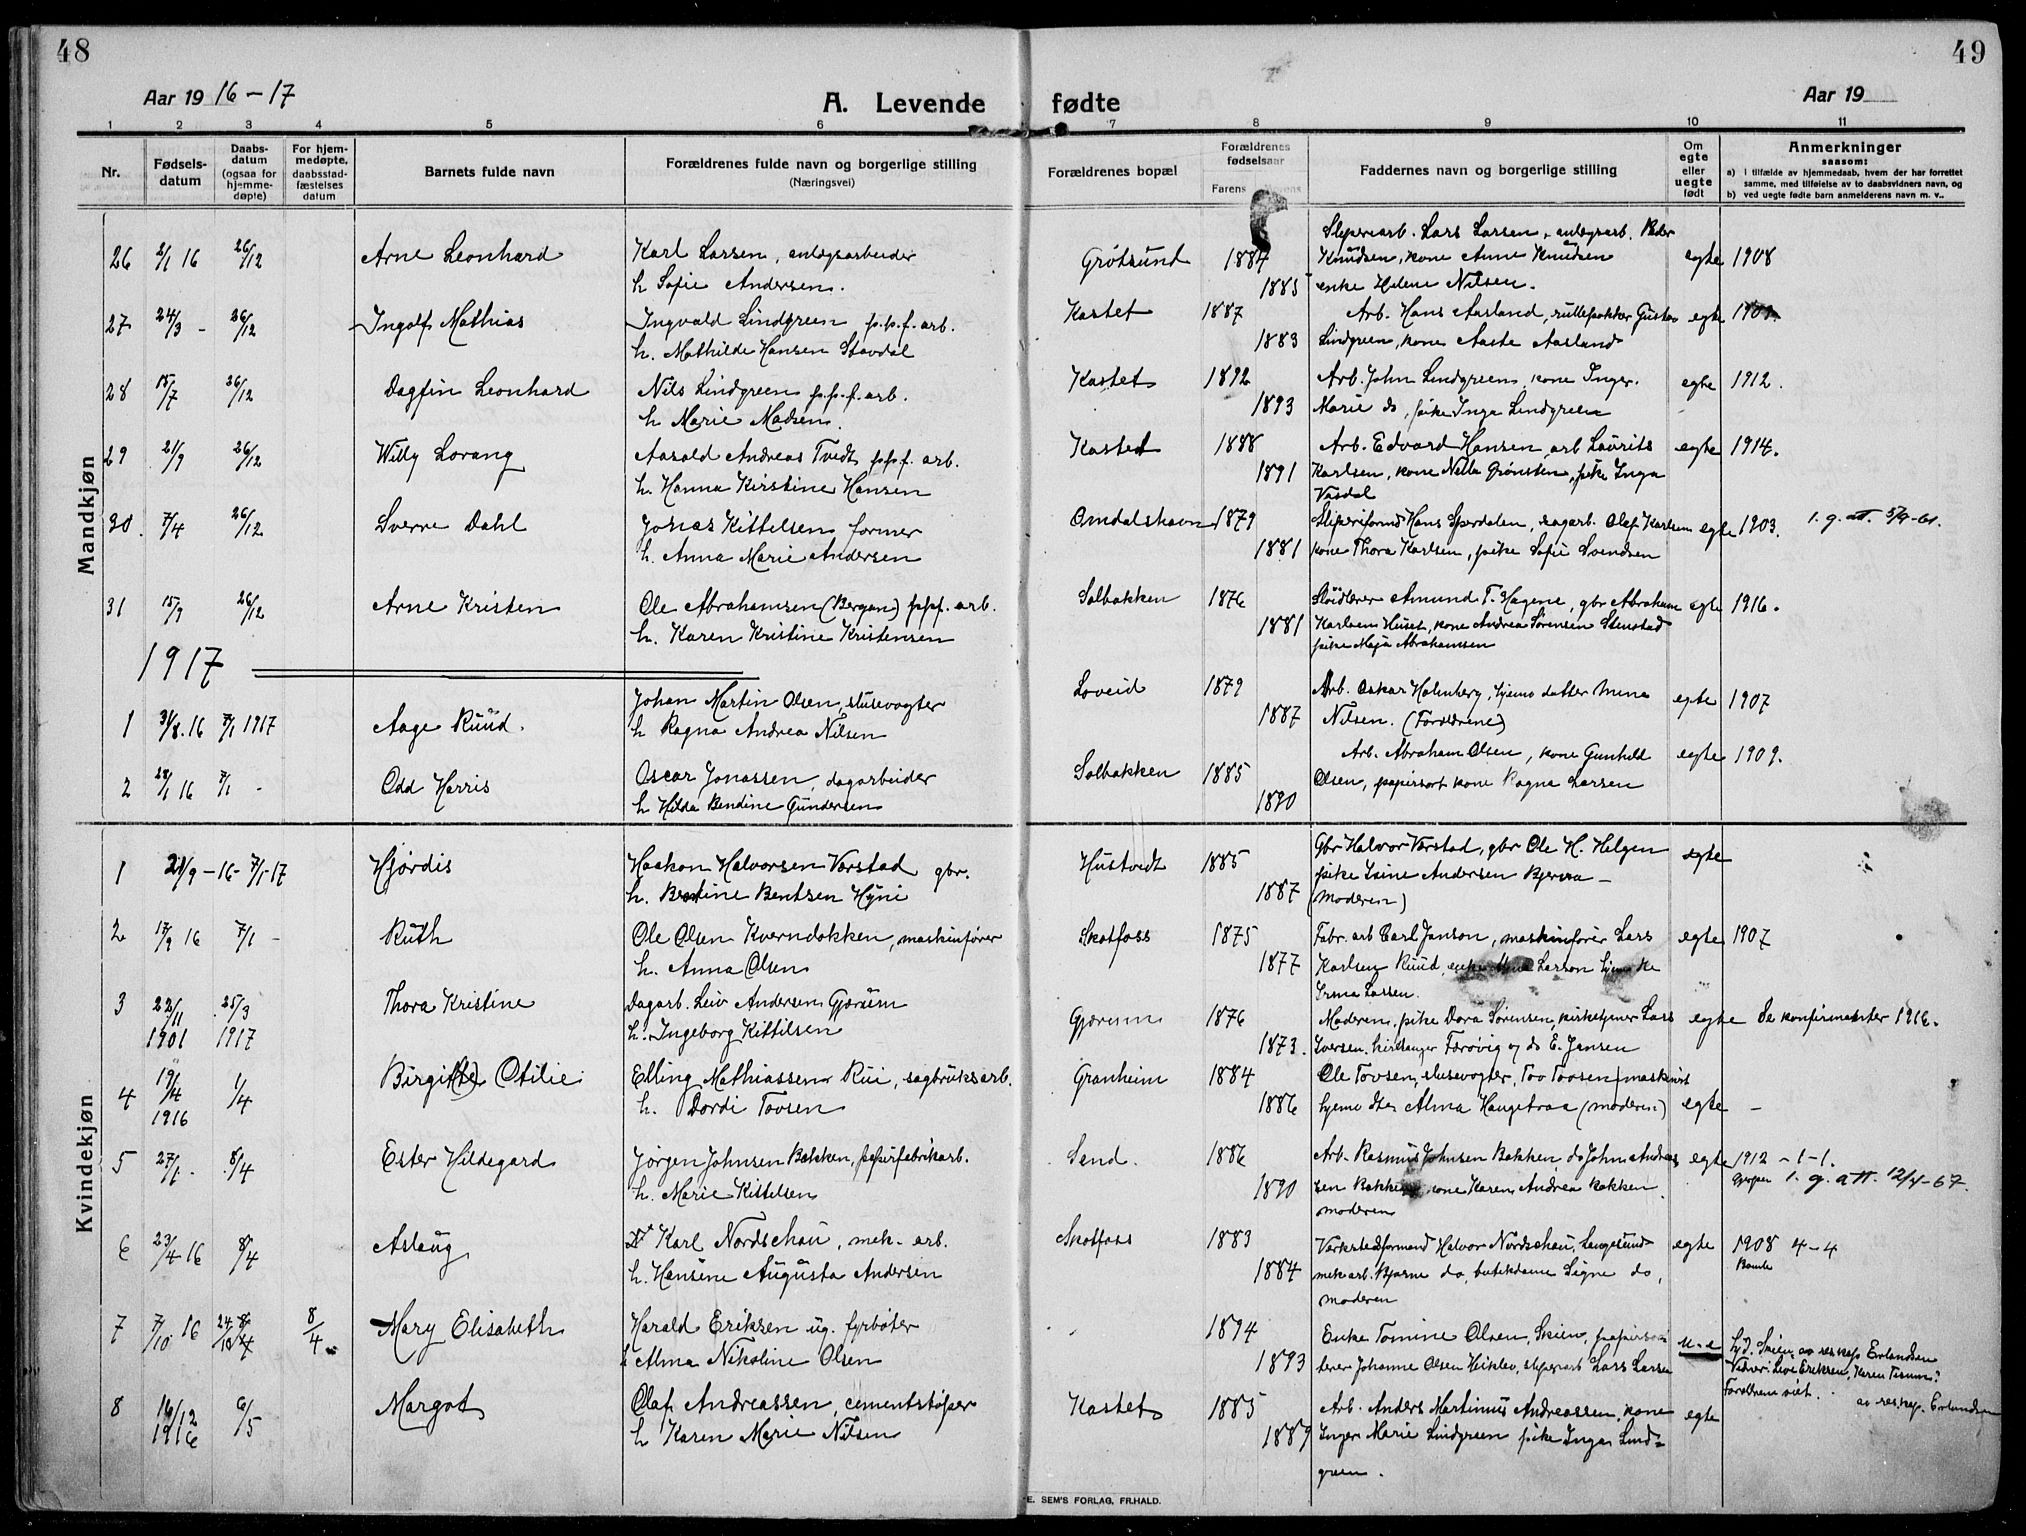 48
49
Aar 19 16-17
A. Levende fødte
Aar 19
1 2 3 4 5 6 7 8 9 10 11
Nr.
Fødsels-
datum
Daabs-
datum
(ogsaa for
hjemme-
døpte)
For hjem-
medøpte,
daabsstad-
fæstelses
datum
Barnets fulde navn
Forældrenes fulde navn og borgerlige stilling
(Næringsvei)
Forældrenes bopæl
Forældrenes
fødselsaar
Farens
Faddernes navn og borgerlige stilling
Om
egte
eller
uegte
født
Anmerkninger
saasom:
a) i tilfælde av hjemmedaab, hvem der har forrettet
samme, med tilføielse av to daabsvidners navn, og
b) ved uegte fødte barn anmelderens navn m. v..
Mandkjøn
26 2/1 16 26/12 Arne Leonhard Karl Larsen, anlægsarbeider Grøtsund 1884 Sliperiarb. Lars Larsen, anlægsarb. Peder
h Sofie Andersen. 1885 Knudsen, kone Anne Knudsen egte 1908
enke Helene Nilsen.
27 24/3 - 26/12 Ingolf Mathias Ingvald Lindgreen p.p.f. arb. Kastet 1887 Arb. Hans Aasland, rullepakker Gustav egte
h. Mathilde Hansen Stavdal 1883 Lindgreen, kone Aaste Aasland
28 15/7 26/12 Dagfin Leonhard Nils Lindgreen p.p.f. arb. Kastet 1892 Arb. John Lindgreen, kone Inger egte 1912.
h Marie Madsen. 1893 Marie do, pike Inga Lindgreen
29 21/9 26/12 Willy Lorang Aasold Andreas Tvedt p.p.f. arb. Kasted 1888 Arb. Edvard Hansen, arb Laurits egte 1914.
h. Hanna Kirstine Hansen 1891 Karlsen, kone Nella Grønsten, pike Inga
Vasdal
30. 7/4 26/12 Sverre Dahl Jonas Kittelsen, former Omdalshavn 1879 Sliperiformd Hans Sperdalen, sagarb. Olaf Karlsen egte 1903. 1. g. att. 5/9-61.
h. Anna Marie Andersen 1881 kone Thora Karlsen, pike Sofie Svendsen
31 15/9 26/12 Arne Kristen Ole Abrahamsen (Bergan) p.p.f. arb. Solbakken 1876 Sløidlærer Amund T. Hagene, gbr Abraham egte 1916.
h. Karen Kristine Kristensen 1881 Karlsen Huset, kone Andrea Sørensen Stenstad
pike Maja Abrahamsen
1917
1 31/8. 16 7/1 1917 Aage Ruud. Johan Martin Olsen, slusevogter Løveid 1879 Arb. Oskar Holmberg, hjemv datter Mina egte 1907
h Ragna Andrea Nilsen 1887 Nilsen. (Forældrene)
2 28/1 16 7/1 - Odd Harris Oscar Jonassen, dagarbeider Solbakken 1885 Arb. Abraham Olsen, kone Gunhild egte 1909.
h Hilda Bendine Gundersen 1890 Olsen, papirsort kone Ragna Larsen
Kvindekjøn
1 21/9 -16- 7/1-17 Hjørdis Haakon Halvorsen Varstad gbr. Hustvedt 1885 Gbr Halvor Varstad, gbr Ole H. Helgen egte
h. Bentine Bentsen Hyni 1887 pike Isine Andersen Bjerva -
(moderen)
2 17/9 16 7/1 - Ruth Ole Olsen Kverndokken, maskinfører Skotfoss 1875 Fabr. arb Carl Janson, maskinfører Lars egte 1907
h. Anna Olsen 1877 Karlsen Ruud, Larsen hjemv ke
Irma Larsen.
3 22/11 1901 25/3 1917 Thora Kristine Dagarb. Leiv Andersen Gjærum Gjærum 1876 Moderen, pike Dora Sørensen, kirketjener Lars egte Se konfirmanter 1916.
h. Ingeborg Kittilsen 1873. Iversen, kirkesanger Færøvig og do E. Jansen
4 19/4 1916 1/4 Birgit(te) Otilie Elling Mathiassen Rui, sagbruksarb. Granheim 1884 Ole Tovsen, slusevogter, Tov Tovsen, maskinist
h. Dordi Tovsen 1886 hjemv dtr Alma Haugetraa (moderen) egte -
5 27/1. 8/4 Ester Hildegard Jørgen Johnsen Bakken, papirfabrikarb. Sand. 1886 Arb. Rasmus Johnsen Bakken, do John Andreas egte 1912 - 1-1.
h. Marie Kittelsen 1890 sen Bakken, kone Karen Andrea Bakken Gjerpen 1. g. att. 12/4-67.
moderen
6 23/4 16 8/4 Aslaug Karl Nordschau, mek. arb. Skotfoss 1883 Verkstedsformand Halvor Nordschau, Langesund egte 1908 4-4
h. Hansine Augusta Andersen 1884 mek arb. Bjarne do, butikdame Signe do, Bamle
moderen
7 7/10 16 8/4 Mary Elisabeth Harald Eriksen ug. fyrbøter 1894 Enke Tomine Olsen, Skien, u. e Hjd. Skien av res.kap. Erlandsen
h Alma Nikoline Olsen 1893 Johanne Olsen Heiklev, sliperiarb Lars Larsen
Forældrene viet. av res.kap. Erlandsen
8 16/12 1916 6/5 Margot Olaf Andreassen, cementstøper Kastet 1885 Arb. Anders Martinius Andreassen, kone egte
h Karen Marie Nilsen 1889 Inger Marie Lindgreen pike Inga Lind-
green.
E. SEM'S FORLAG, FR.HALD.